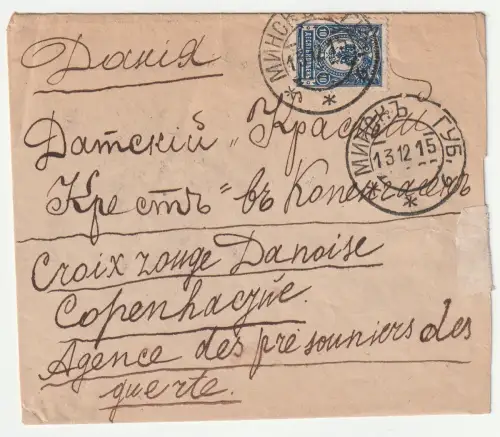 Данія
МИНСКЪ
10
Датскій "Красный
Крестъ" въ Копенгагенъ
МИНСКЪ ГУБ.
13 12 15
Croix rouge Danoise
Copenhacque.
Agence des présouniers des
guerte.